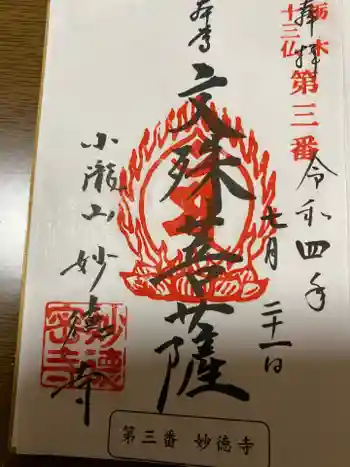 奉拝
栃木
十三仏
第三番
令和四年
七月二十一日
本尊
文殊菩薩
小瀧山
妙徳寺
妙徳
密寺
第三番 妙徳寺